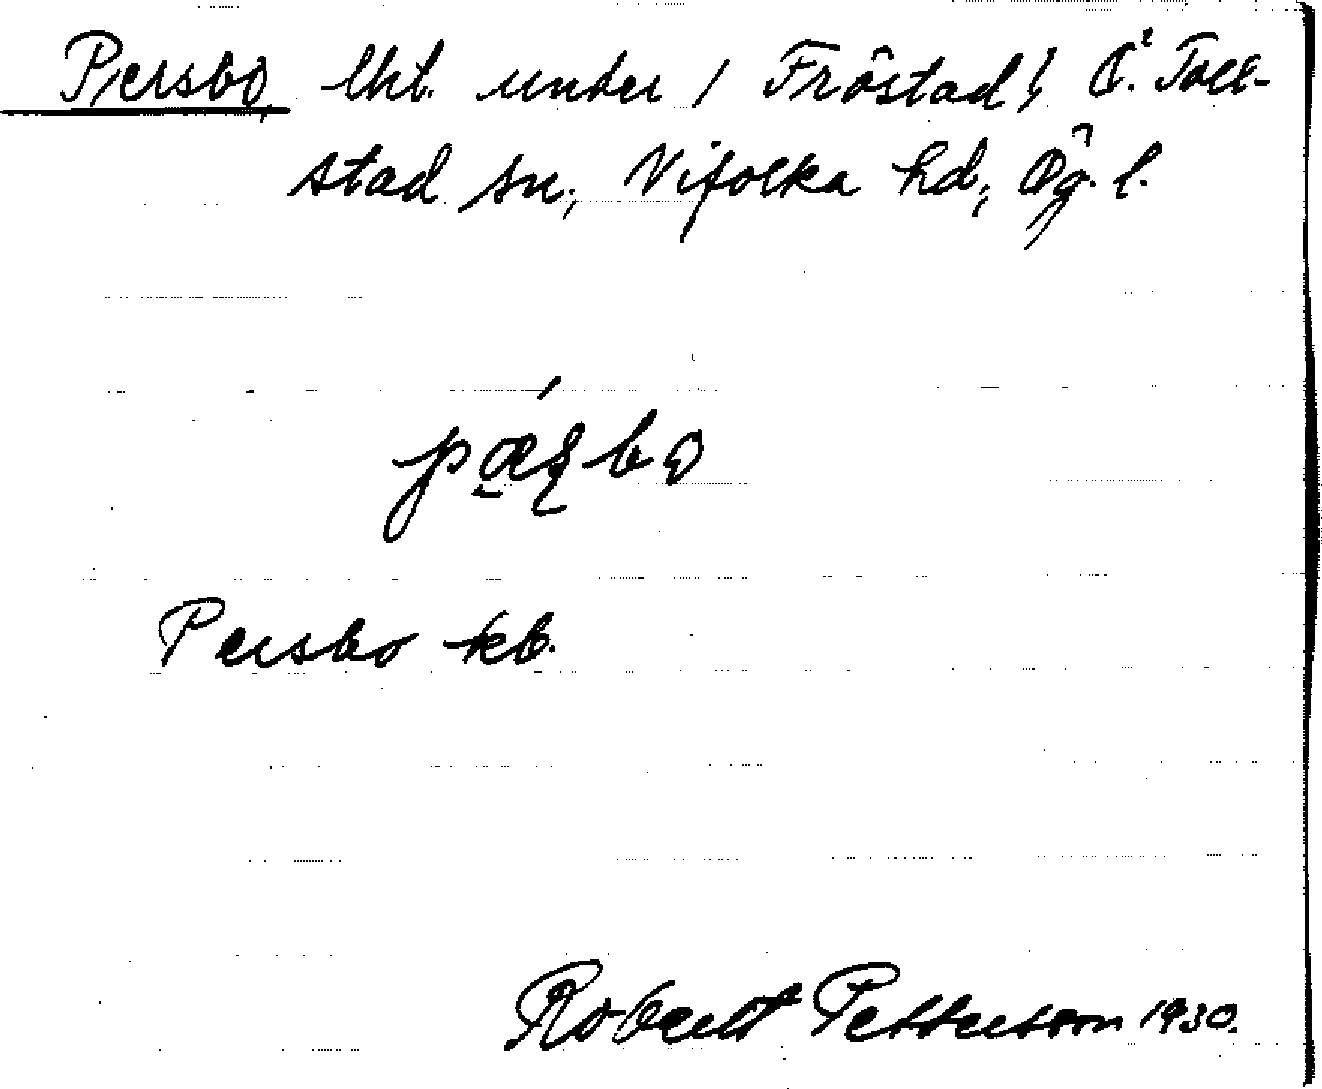 Persbo, lht. under / Fröstad / Ö. Toll-
stad sn, Vifolka hd, Ög. l.
Persbo kb.
Robert Pettersson 1930.